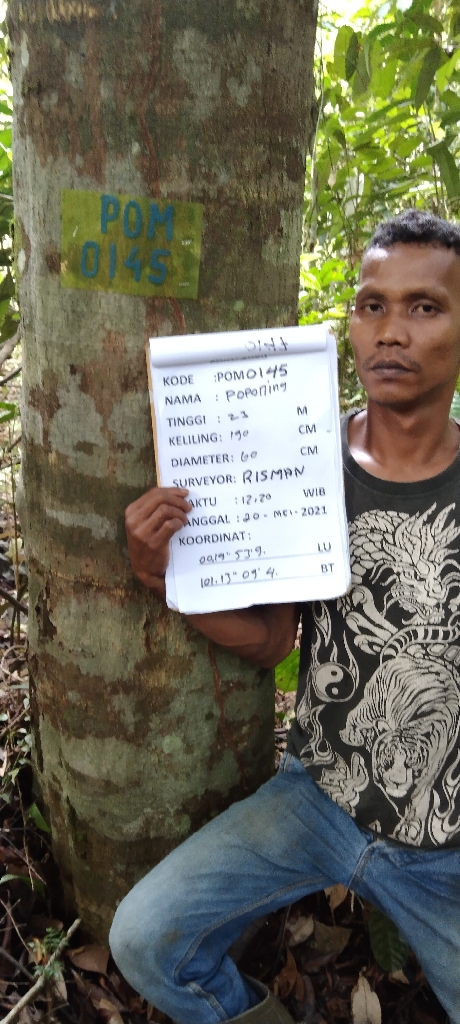 POM
0145
KODE : POM0145
NAMA : POPOMING
TINGGI : 23 M
KELILING: 190 CM
DIAMETER: 60 CM
SURVEYOR: RISMAN
AKTU : 12,20 WIB
ANGGAL : 20 - MEI - 2021
KOORDINAT:
00.19" 53'9. LU
101.13" 09' 4. BT